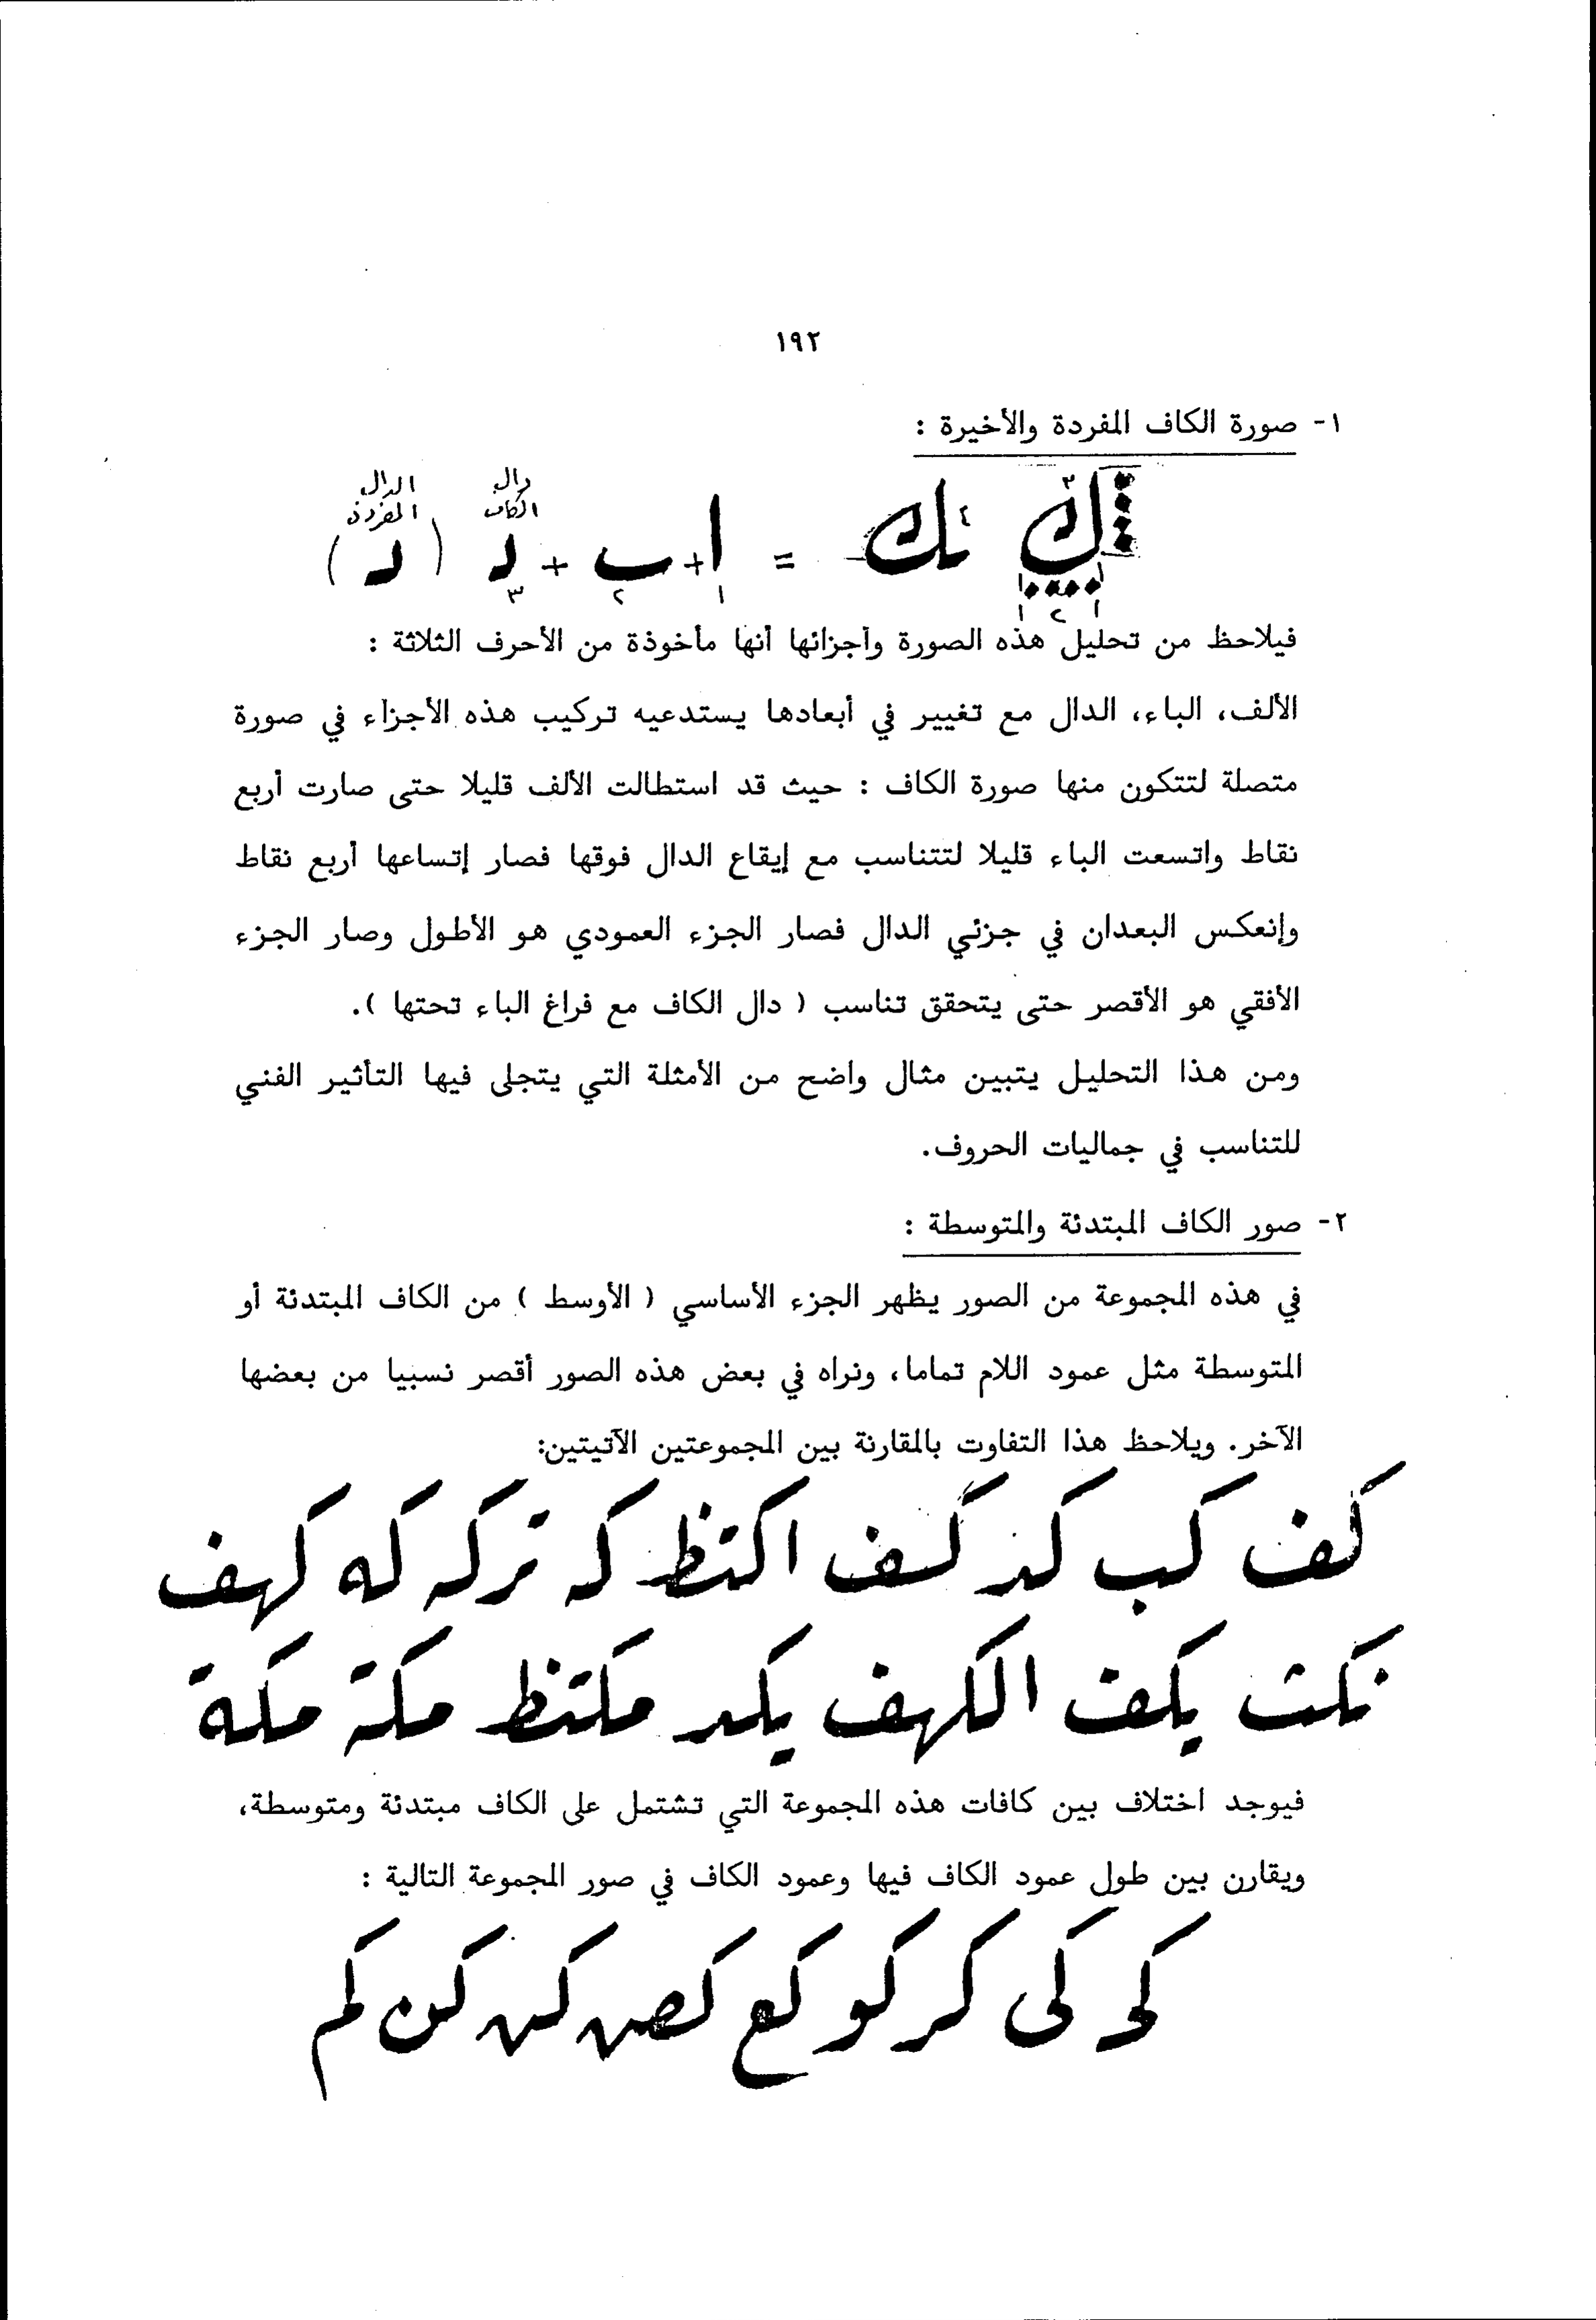 ١٩٢
١- صورة الكاف المفردة والأخيرة :
دال الكاف الدال المفردة
ك ، ـك = ا + ب + د ( د )
١ ٢ ٣
فيلاحظ من تحليل هذه الصورة وأجزائها أنها مأخوذة من الأحرف الثلاثة :
الألف، الباء، الدال مع تغيير في أبعادها يستدعيه تركيب هذه الأجزاء في صورة
متصلة لتتكون منها صورة الكاف : حيث قد استطالت الألف قليلا حتى صارت أربع
نقاط واتسعت الباء قليلا لتتناسب مع إيقاع الدال فوقها فصار إتساعها أربع نقاط
وإنعكس البعدان في جزئي الدال فصار الجزء العمودي هو الأطول وصار الجزء
الأفقي هو الأقصر حتى يتحقق تناسب ( دال الكاف مع فراغ الباء تحتها ).
ومن هذا التحليل يتبين مثال واضح من الأمثلة التي يتجلى فيها التأثير الفني
للتناسب في جماليات الحروف.
٢- صور الكاف المبتدئة والمتوسطة :
في هذه المجموعة من الصور يظهر الجزء الأساسي ( الأوسط ) من الكاف المبتدئة أو
المتوسطة مثل عمود اللام تماما، ونراه في بعض هذه الصور أقصر نسبيا من بعضها
الآخر. ويلاحظ هذا التفاوت بالمقارنة بين المجموعتين الآتيتين:
كف كب كد كسف اكتظ كه تركه كه كهف
نكث يكف الكهف يكد مكتظ مكة مكة
فيوجد اختلاف بين كافات هذه المجموعة التي تشتمل على الكاف مبتدئة ومتوسطة،
ويقارن بين طول عمود الكاف فيها وعمود الكاف في صور المجموعة التالية :
كح كى كر كو كع كص كس كن كم